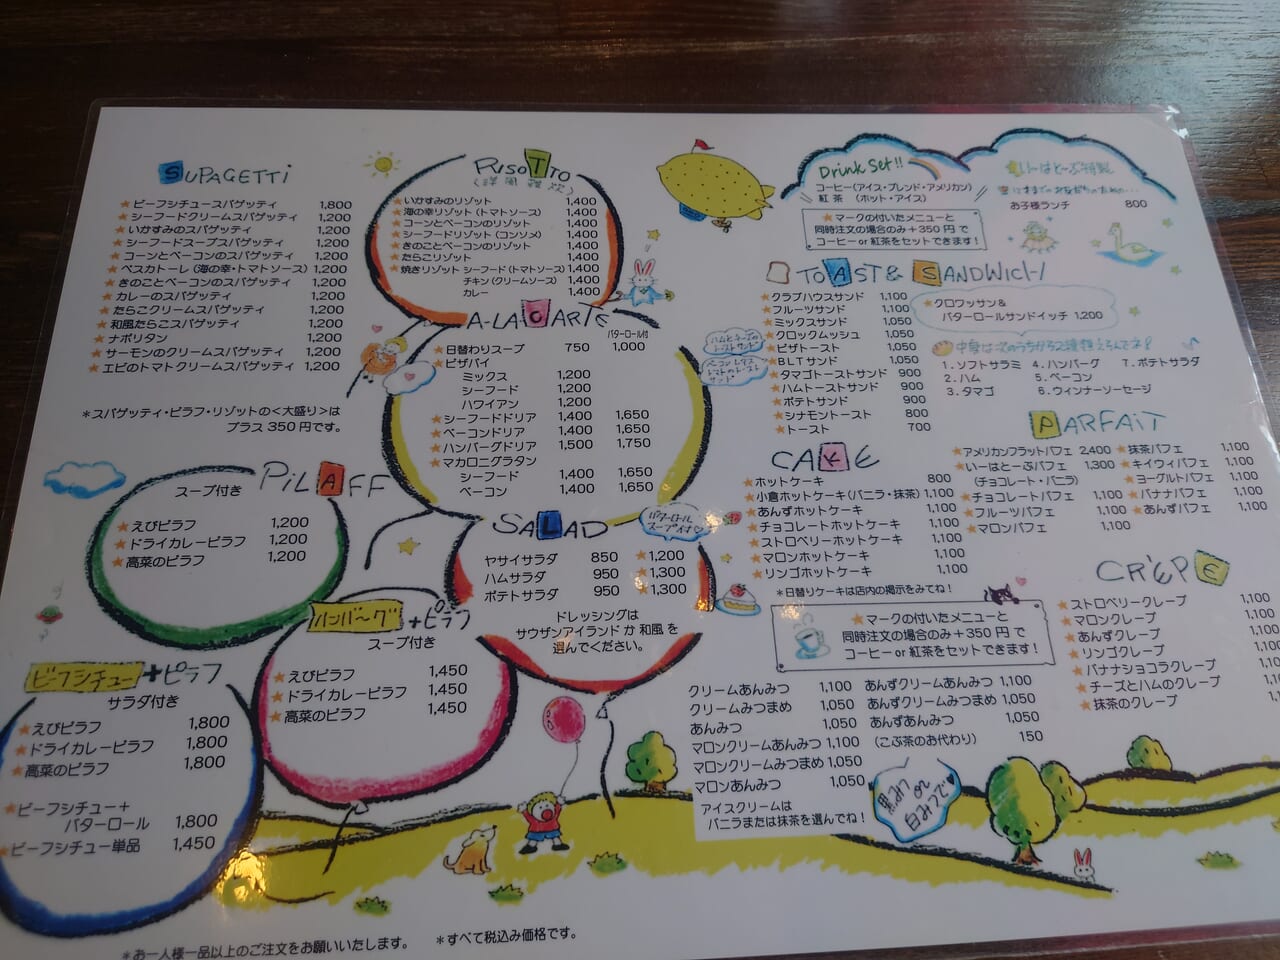 SUPAGETTI
★ビーフシチュースパゲッティ 1,800
★シーフードクリームスパゲッティ 1,200
★いかすみのスパゲッティ 1,200
★シーフードスープスパゲッティ 1,200
★コーンとベーコンのスパゲッティ 1,200
★ペスカトーレ(海の幸・トマトソース) 1,200
★きのことベーコンのスパゲッティ 1,200
★カレーのスパゲッティ 1,200
★たらこクリームスパゲッティ 1,200
★和風たらこスパゲティ 1,200
★ナポリタン 1,200
★サーモンのクリームスパゲティ 1,200
★エビのトマトクリームスパゲティ 1,200
*スパゲッティ・ピラフ・リゾットの<大盛り>は
プラス350円です。
RISOTTO
(洋風雑炊)
★いかすみのリゾット 1,400
★海の幸リゾット(トマトソース) 1,400
★コーンとベーコンのリゾット 1,400
★シーフードリゾット(コンソメ) 1,400
★きのことベーコンのリゾット 1,400
★たらこリゾット 1,400
★焼きリゾット シーフード(トマトソース) 1,400
チキン(クリームソース) 1,400
カレー 1,400
A-LACARTE
バターロール付
★日替わりスープ 750 1,000
★ピザパイ
ミックス 1,200
シーフード 1,200
ハワイアン 1,200
★シーフードドリア 1,400 1,650
★ベーコンドリア 1,400 1,650
★ハンバーグドリア 1,500 1,750
★マカロニグラタン
シーフード 1,400 1,650
ベーコン 1,400 1,650
PILAFF
スープ付き
★えびピラフ 1,200
★ドライカレーピラフ 1,200
★高菜のピラフ 1,200
SALAD
バターロール
スープ付♡
ヤサイサラダ 850 ★1,200
ハムサラダ 950 ★1,300
ポテトサラダ 950 ★1,300
ドレッシングは
サウザンアイランド か 和風 を
選んでください。
ハンバーグ+ピラフ
スープ付き
★えびピラフ 1,450
★ドライカレーピラフ 1,450
★高菜のピラフ 1,450
ビーフシチュー+ピラフ
サラダ付き
★えびピラフ 1,800
★ドライカレーピラフ 1,800
★高菜のピラフ 1,800
★ビーフシチュー+
バターロール 1,800
★ビーフシチュー単品 1,450
*お一人様一品以上のご注文をお願いいたします。 *すべて税込み価格です。
Drink Set!!
コーヒー(アイス・ブレンド・アメリカン)
紅茶 (ホット・アイス)
★マークの付いたメニューと
同時注文の場合のみ+350円で
コーヒー or 紅茶をセットできます!
いーはとーぶ特製
お子様ランチ 800
TOAST & SANDWICH
★クラブハウスサンド 1,100
★フルーツサンド 1,100
★ミックスサンド 1,050
★クロックムッシュ 1,050
★ピザトースト 1,050
★BLTサンド 1,050
★タマゴトーストサンド 900
★ハムトーストサンド 900
★ポテトサンド 900
★シナモントースト 800
★トースト 700
ハムとチーズの
トーストサンド
ベーコンレタス
トマトのトースト
サンド
★クロワッサン&
バターロールサンドイッチ 1,200
中身は次のうちから2種類えらんでネ!
1.ソフトサラミ 4.ハンバーグ 7.ポテトサラダ
2.ハム 5.ベーコン
3.タマゴ 6.ウィンナーソーセージ
CAKE
★ホットケーキ 800
★小倉ホットケーキ(バニラ・抹茶) 1,100
★あんずホットケーキ 1,100
★チョコレートホットケーキ 1,100
★ストロベリーホットケーキ 1,100
★マロンホットケーキ 1,100
★リンゴホットケーキ 1,100
*日替りケーキは店内の掲示をみてね!
PARFAIT
★アメリカンフラットパフェ 2,400
★いーはとーぶパフェ 1,300
(チョコレート・バニラ)
★チョコレートパフェ 1,100
★フルーツパフェ 1,100
★マロンパフェ 1,100
★抹茶パフェ 1,100
★キイウィパフェ 1,100
★ヨーグルトパフェ 1,100
★バナナパフェ 1,100
★あんずパフェ 1,100
★マークの付いたメニューと
同時注文の場合のみ+350円で
コーヒー or 紅茶をセットできます!
CREPE
★ストロベリークレープ 1,100
★マロンクレープ 1,100
★あんずクレープ 1,100
★リンゴクレープ 1,100
★バナナショコラクレープ
★チーズとハムのクレープ
★抹茶のクレープ
クリームあんみつ 1,100
クリームみつまめ 1,050
あんみつ 1,050
マロンクリームあんみつ 1,100
マロンクリームみつまめ 1,050
マロンあんみつ 1,050
あんずクリームあんみつ 1,100
あんずクリームみつまめ 1,050
あんずあんみつ 1,050
(こぶ茶のお代わり) 150
アイスクリームは
バニラまたは抹茶を選んでね!
黒みつ or
白みつで♡